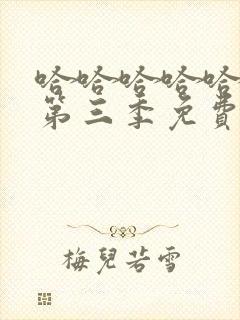 哈哈哈哈哈
第三季免費
梅兒若雪